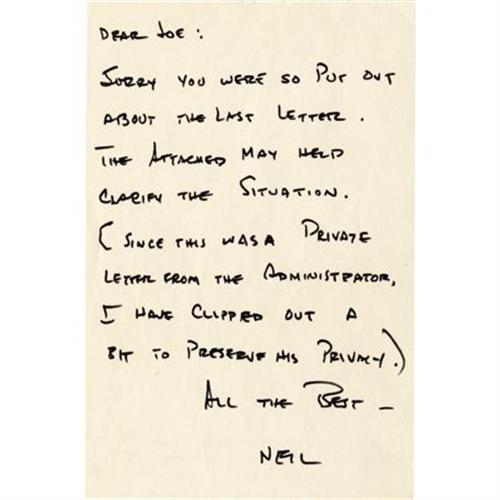 DEAR JOE:
SORRY YOU WERE SO PUT OUT
ABOUT THE LAST LETTER.
THE ATTACHED MAY HELP
CLARIFY THE SITUATION.
(SINCE THIS WAS A PRIVATE
LETTER FROM THE ADMINISTRATOR,
I HAVE CLIPPED OUT A
BIT TO PRESERVE HIS PRIVACY.)
ALL THE BEST –
NEIL